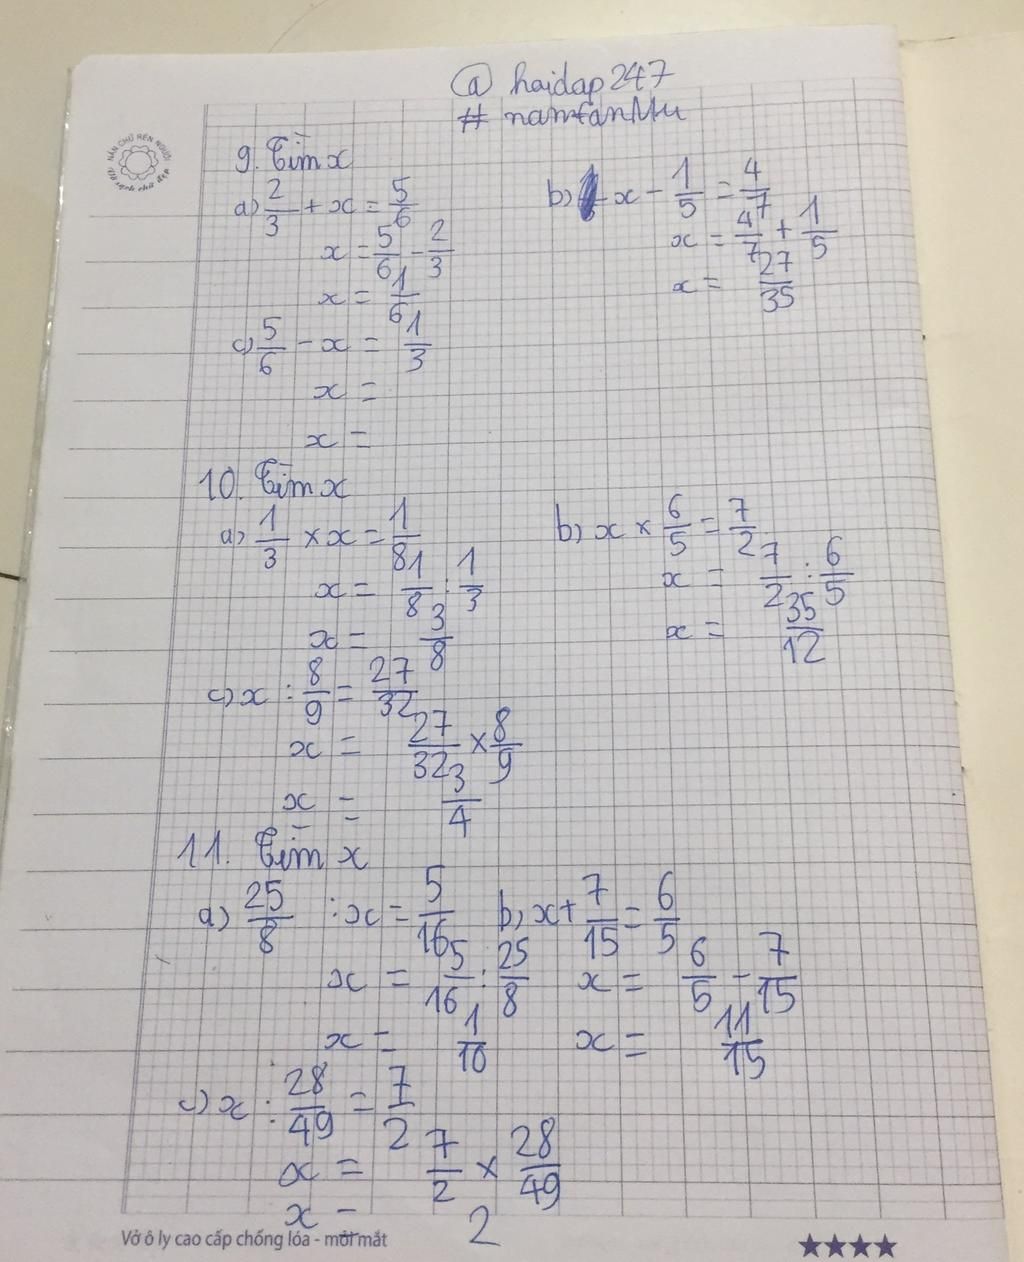 @ haidap247
# namfanMu
NẮN CHỮ RÈN NGƯỜI
Vở sạch chữ đẹp
9. Tìm x
a) 2/3 + x = 5/6
x = 5/6 - 2/3
x = 1/6
b) x - 1/5 = 4/7
x = 4/7 + 1/5
x = 27/35
c) 5/6 - x = 1/3
x =
x =
10. Tìm x
a) 1/3 × x = 1/8
x = 1/8 : 1/3
x = 3/8
b) x × 6/5 = 7/2
x = 7/2 : 6/5
x = 35/12
c) x : 8/9 = 27/32
x = 27/32 × 8/9
x = 3/4
11. Tìm x
a) 25/8 : x = 5/16
x = 5/16 : 25/8
x = 1/10
b) x + 7/15 = 6/5
x = 6/5 - 7/15
x = 11/15
c) x : 28/49 = 7/2
x = 7/2 × 28/49
x = 2
Vở ô ly cao cấp chống lóa - mỏi mắt